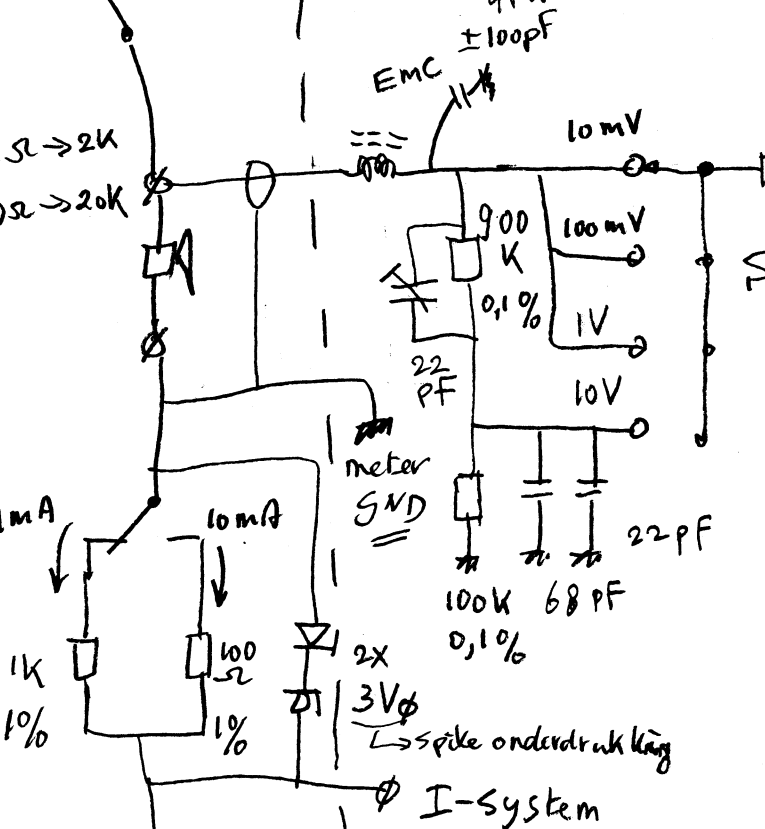 ±100pF
EMC
10mV
Ω→2K
Ω→20K
900
K
0,1%
100mV
1V
10V
22
pF
meter
GND
1mA
10mA
22pF
100K
0,1%
68pF
1K
1%
100
Ω
1%
2x
3V∅
↳spike onderdrukking
I-System